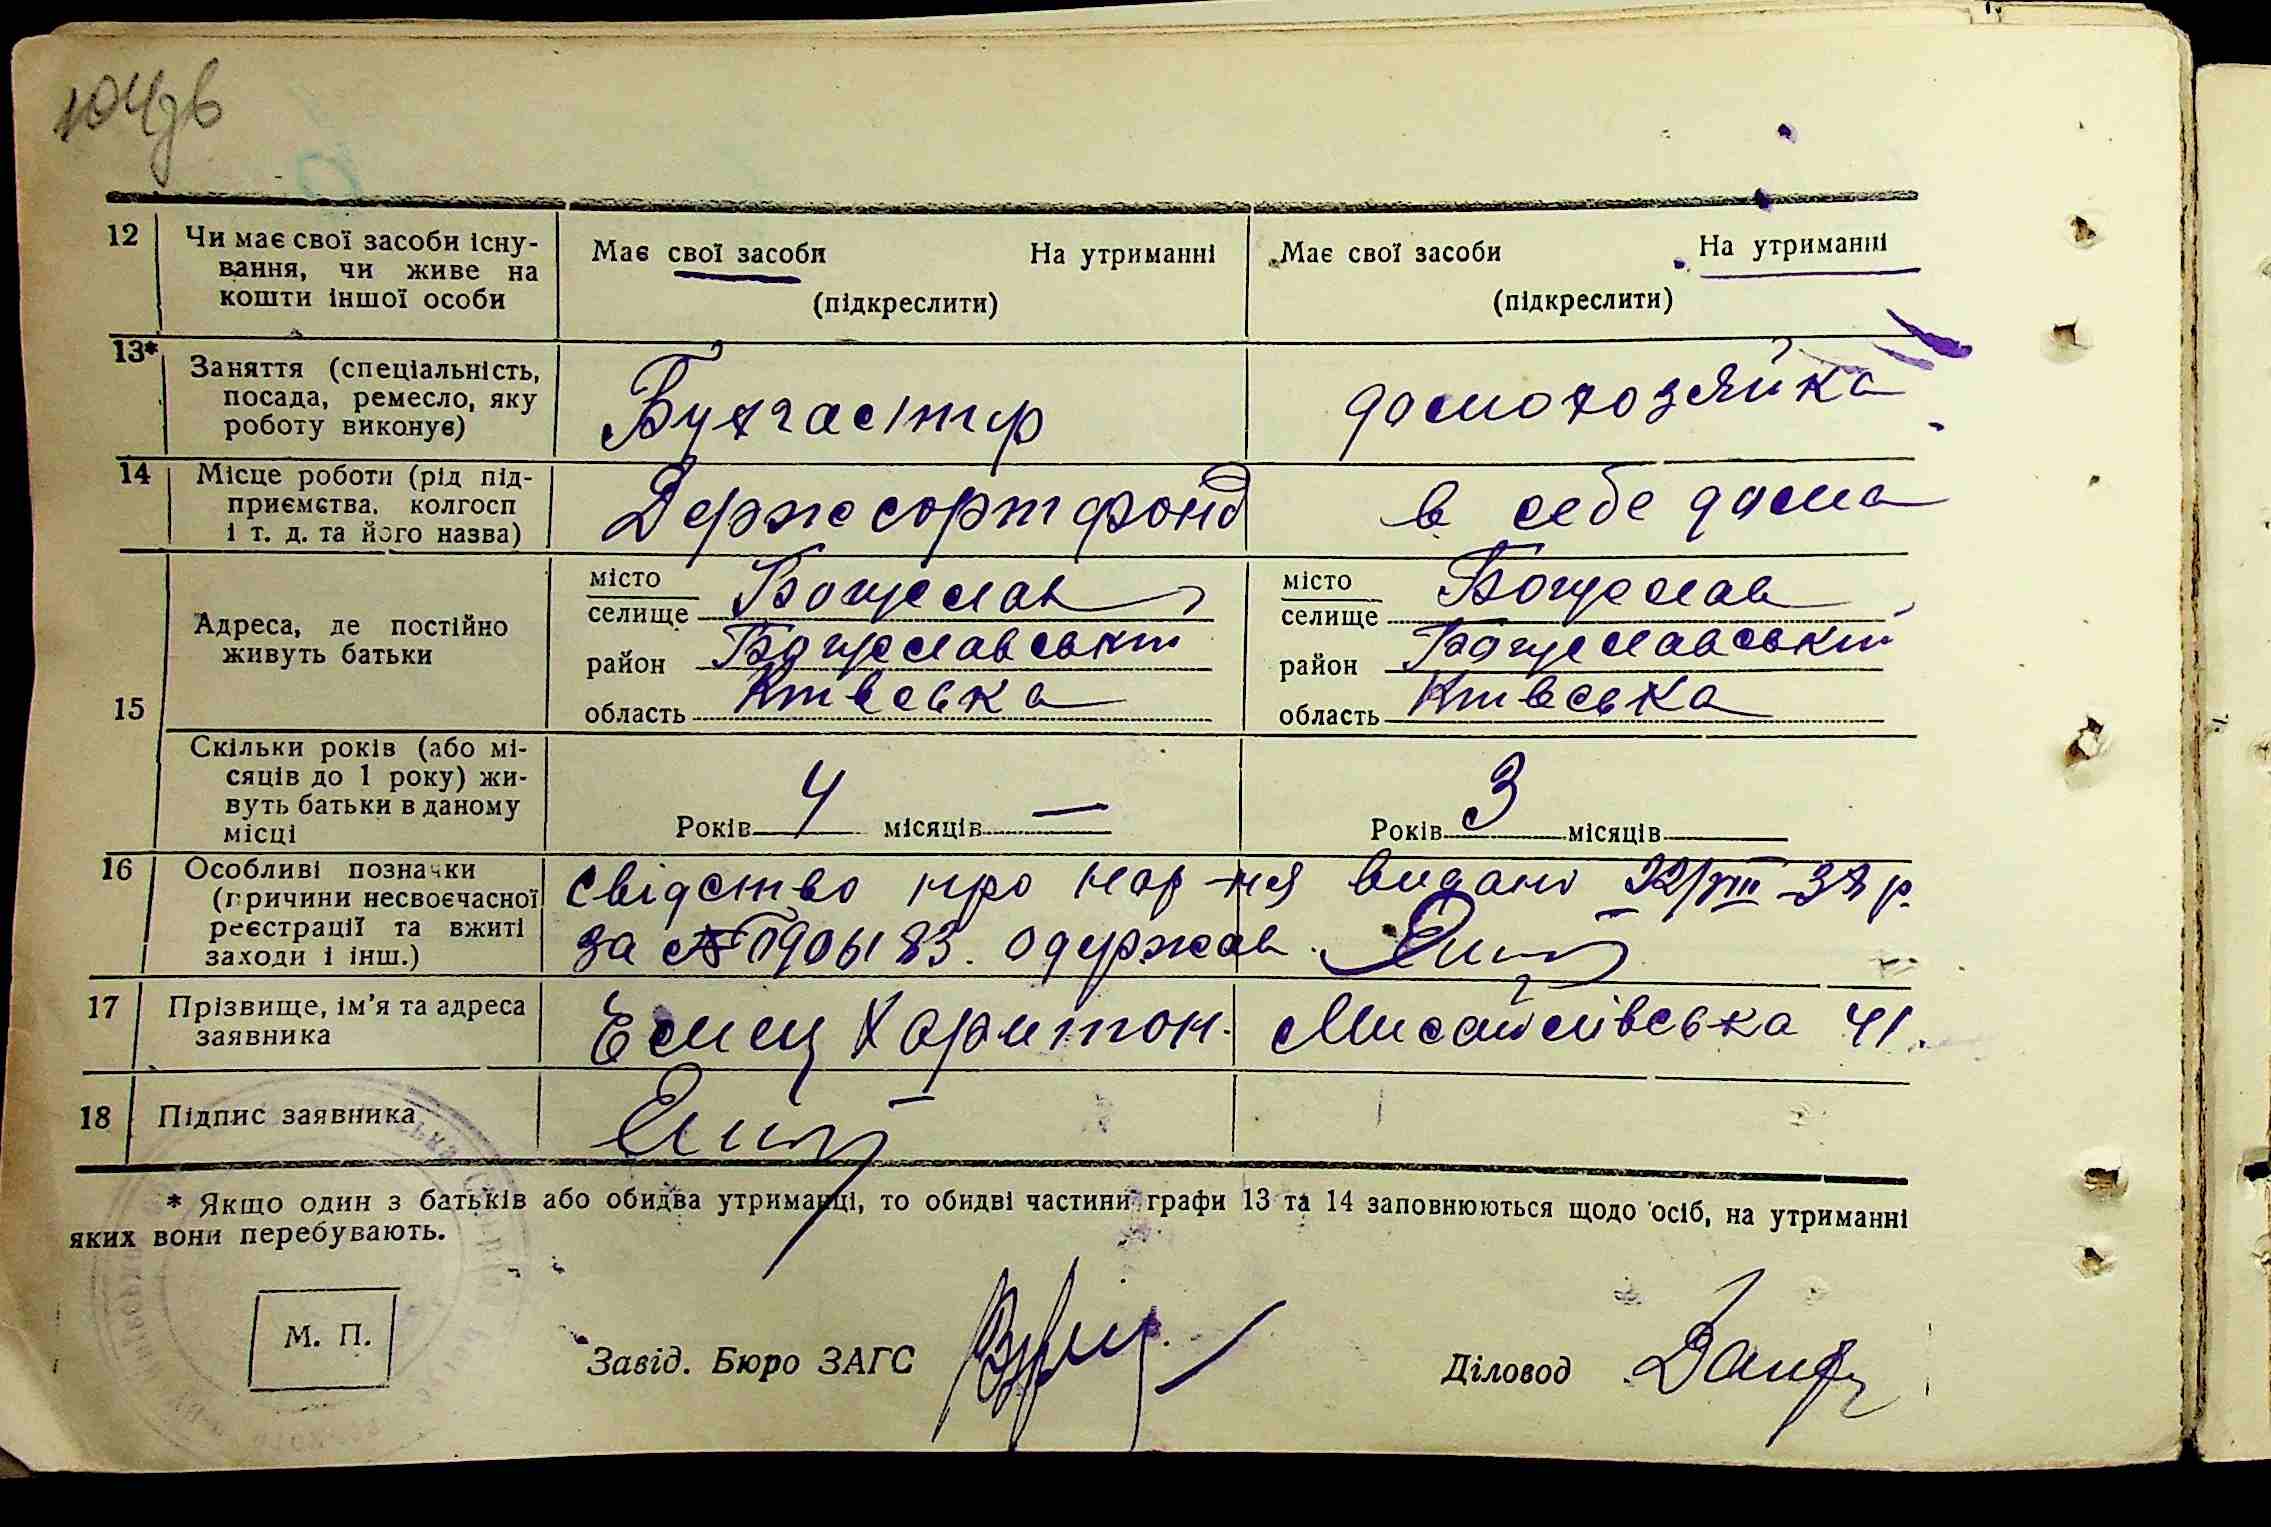 104зв
12 Чи має свої засоби існу-
вання, чи живе на
кошти іншої особи
Має свої засоби На утриманні
(підкреслити)
Має свої засоби На утриманні
(підкреслити)
13* Заняття (спеціальність,
посада, ремесло, яку
роботу виконує)
Бухгалтир
домохозяйка
14 Місце роботи (рід під-
приємства, колгосп
і т. д. та його назва)
Держсортфонд
в себе дома
15 Адреса, де постійно
живуть батьки
місто
селище Богуслав
район Богуславський
область Київська
місто
селище Богуслав
район Богуславський
область Київська
Скільки років (або мі-
сяців до 1 року) жи-
вуть батьки в даному
місці
Років 4 місяців —
Років 3 місяців
16 Особливі позначки
(причини несвоєчасної
реєстрації та вжиті
заходи і інш.)
свідство про нар-ня видано 22/VIII-37 р.
за одержав.
17 Прізвище, ім'я та адреса
заявника
Емец Харитон. Мисайлівська 41.
18 Підпис заявника
* Якщо один з батьків або обидва утриманці, то обидві частини графи 13 та 14 заповнюються щодо осіб, на утриманні
яких вони перебувають.
М. П.
Завід. Бюро ЗАГС
Діловод